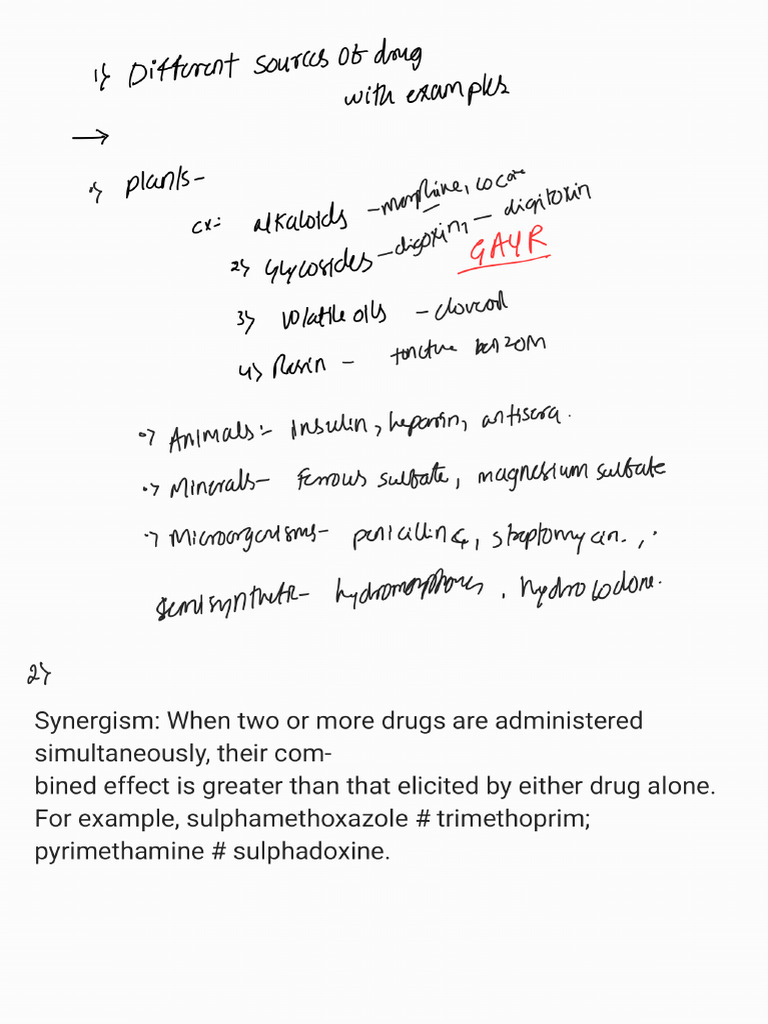 1) Different sources of drug
with examples
→
•) plants-
ex:- alkaloids - morphine, cocaine
2) Glycosides - digoxin, - digitoxin
GAYR
3) Volatile oils - clove oil
4) Resin - tincture benzoin
•) Animals:- Insulin, heparin, antisera.
•) Minerals- ferrous sulfate, magnesium sulfate
•) Microorganisms- penicillin G, streptomycin.,
semisynthetic- hydromorphones, hydrocodone.
2)
Synergism: When two or more drugs are administered
simultaneously, their com-
bined effect is greater than that elicited by either drug alone.
For example, sulphamethoxazole # trimethoprim;
pyrimethamine # sulphadoxine.